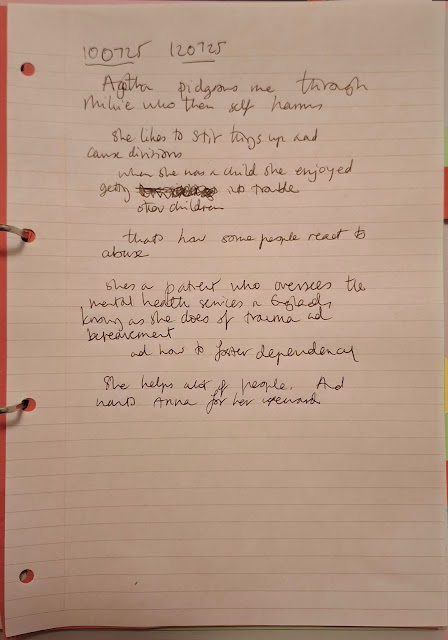 100725 120725
Agatha pidgeons me through
Millie who then self harms
She likes to stir things up and
cause divisions
when she was a child she enjoyed
getting into trouble
other children
thats how some people react to
abuse
shes a patient who oversees the
mental health services in England,
knowing as she does of trauma ad
bereavement
ad how to foster dependency
She helps alot of people. And
wants Anna for her reward